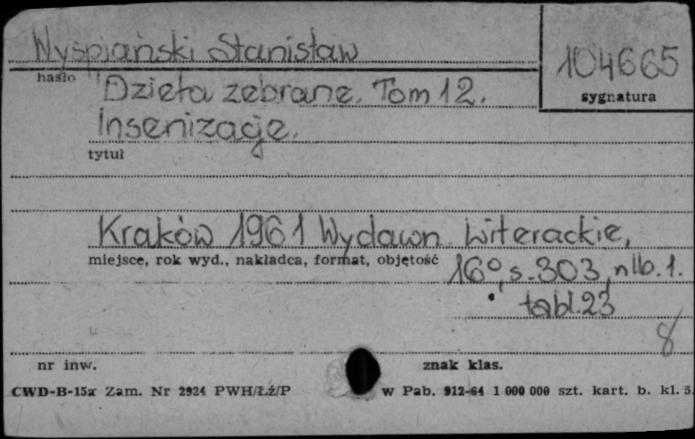 Wyspiański Stanisław
104665
hasło
sygnatura
Dzieła zebrane. Tom 12.
Insenizacje.
tytuł
Kraków 1961 Wydawn. Literackie,
miejsce, rok wyd., nakładca, format, objętość
16°, s. 303, nlb. 1.
tabl. 23
8
nr inw.
znak klas.
CWD-B-15a Zam. Nr 2924 PWH/Łź/P
w Pab. 912-64 1 000 000 szt. kart. b. kl. 5